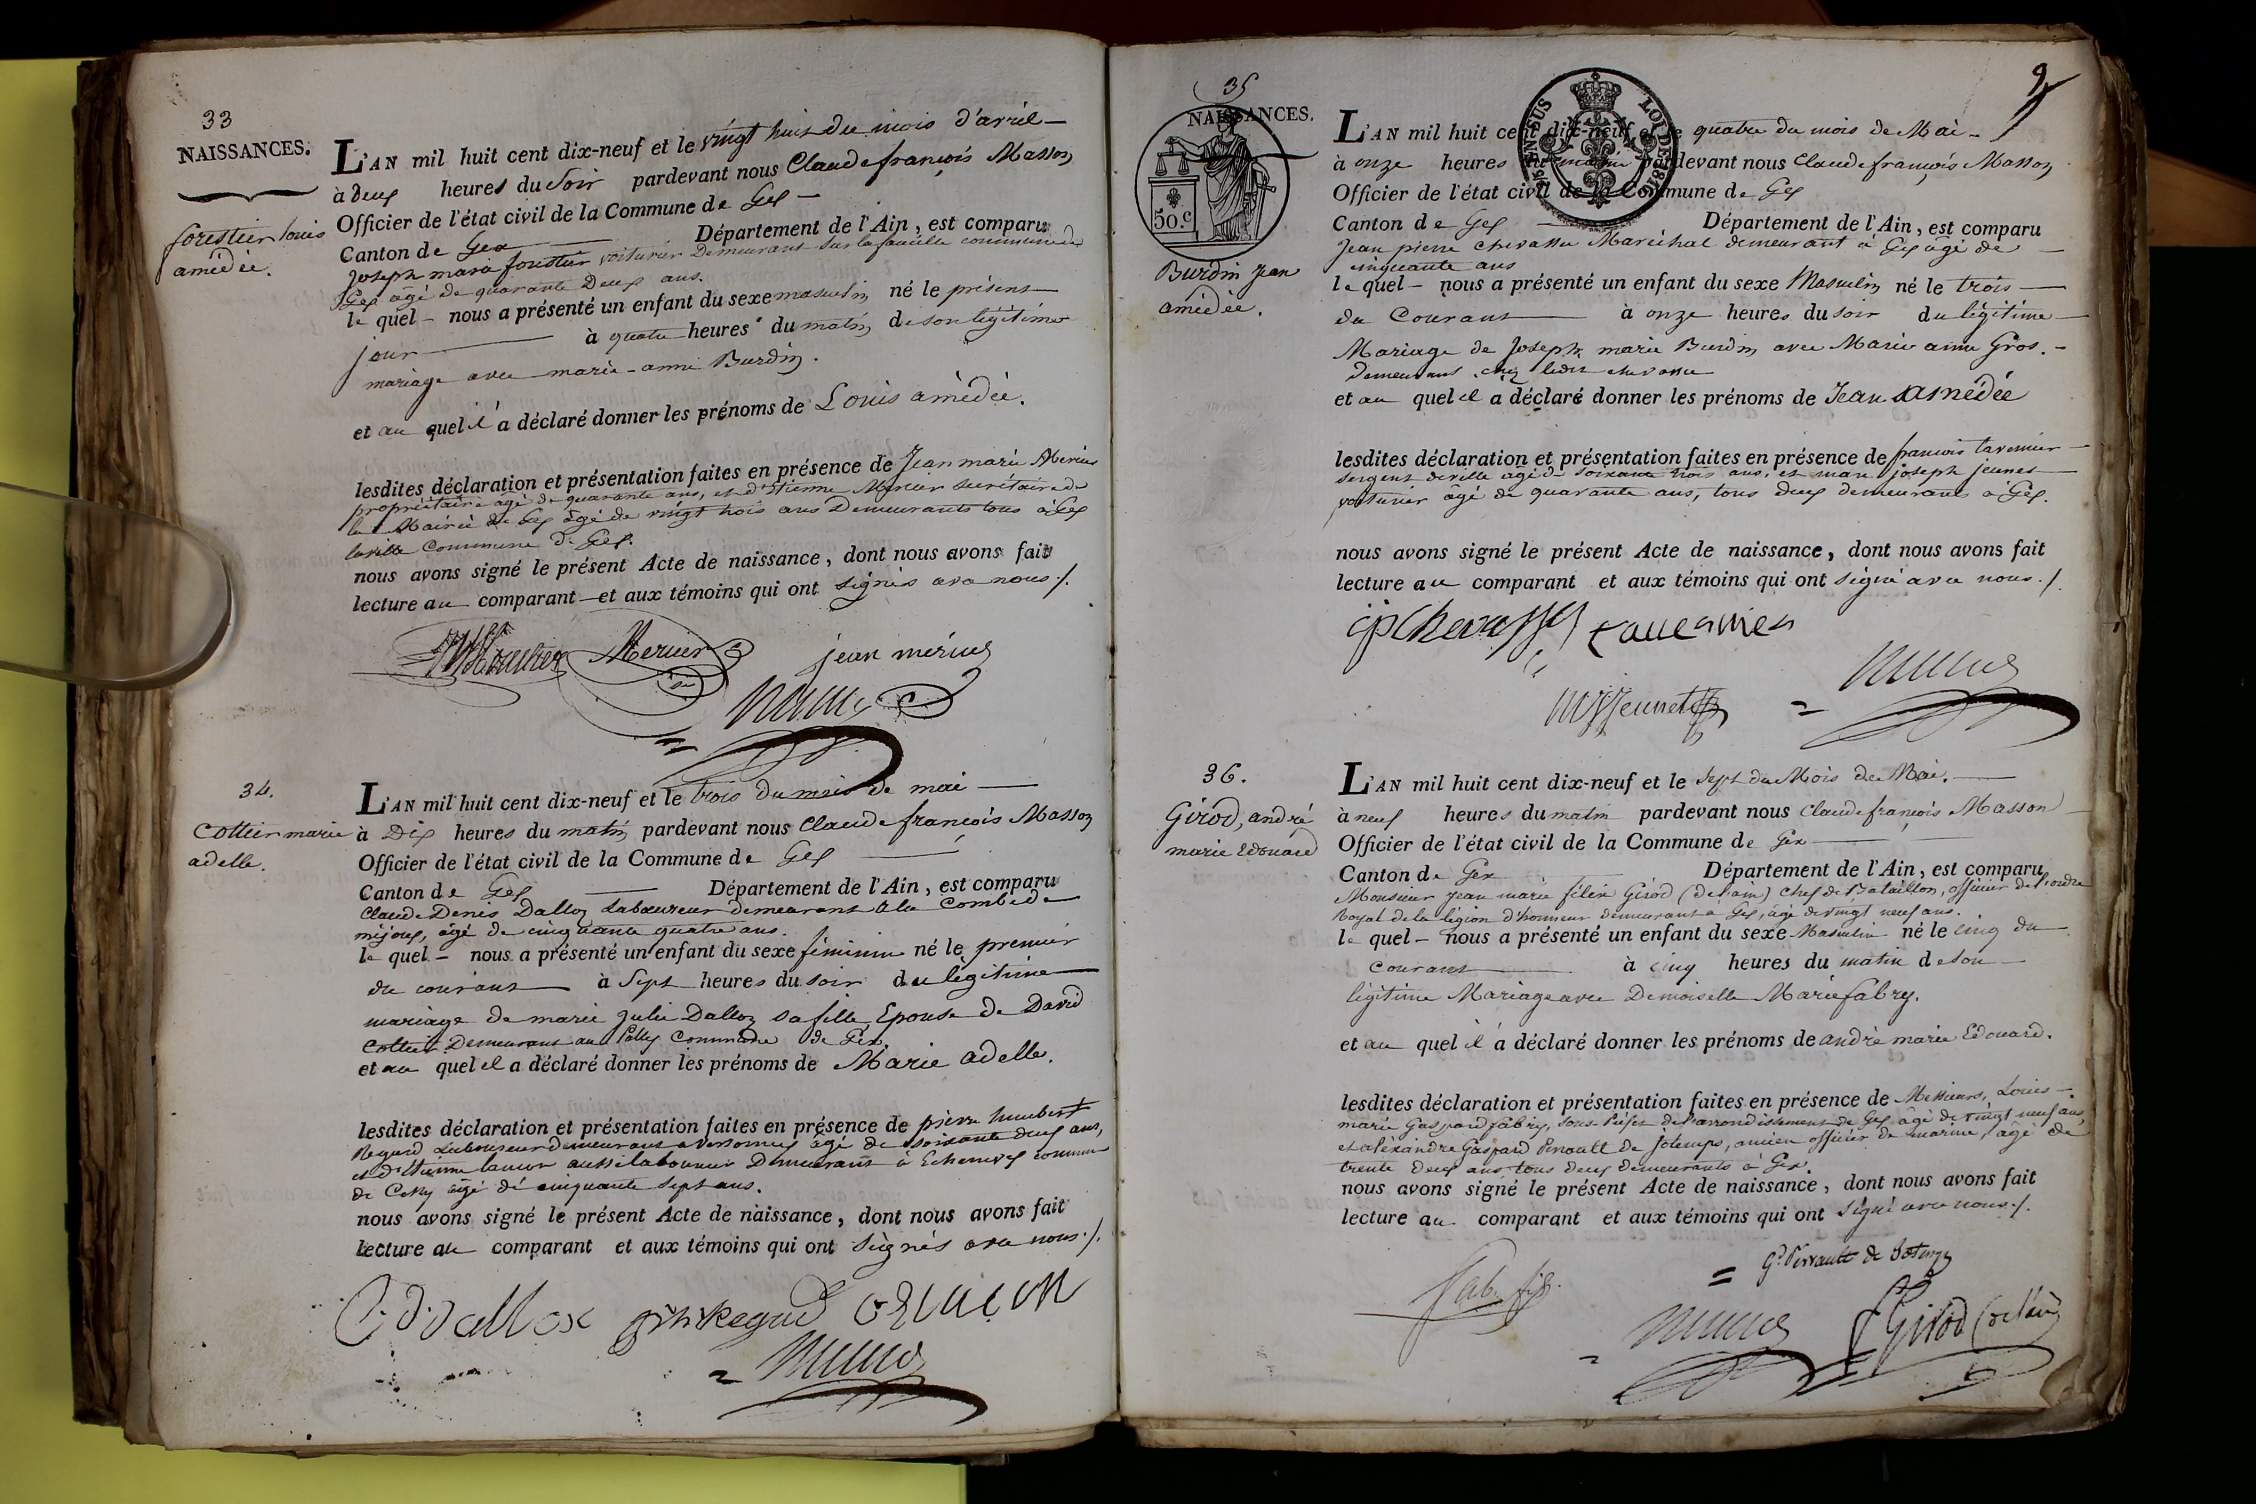 33
NAISSANCES.
forestier louis
amédée.
L'AN mil huit cent dix-neuf et le vingt huit du mois d'avril
à deux heures du soir pardevant nous Claude françois Masson
Officier de l'état civil de la Commune de Gex
Canton de Gex Département de l'Ain, est comparu
Joseph marie forestier voiturier Demeurant sur la faucille commune de
Gex âgé de quarante Deux ans.
le quel nous a présenté un enfant du sexe masculin né le présent
jour à quatre heures du matin de son légitime
mariage avec marie-anne Burdin.
et au quel il a déclaré donner les prénoms de Louis amédée.
lesdites déclaration et présentation faites en présence de Jean marie Mérieu
propriétaire âgé de quarante ans, et d'Etienne Mercier Secrétaire de
la Mairie de Gex âgé de vingt trois ans Demeurants tous à Gex
laville Commune de Gex.
nous avons signé le présent Acte de naissance, dont nous avons fait
lecture au comparant et aux témoins qui ont signés avec nous ./.
Mercier jean mérieu
34.
Cottier marie
adelle.
L'AN mil huit cent dix-neuf et le trois du mois de mai
à Dix heures du matin pardevant nous Claude françois Masson
Officier de l'état civil de la Commune de Gex
Canton de Gex Département de l'Ain, est comparu
Claude Denis Dalloz Laboureur demeurant à la Combe de
mijoux, âgé de cinquante quatre ans.
le quel nous a présenté un enfant du sexe féminin né le premier
du courant à Sept heures du soir du légitime
mariage de marie Julie Dalloz sa fille, Epouse de David
Cottier Demeurant au Pailly Commune de Gex.
et au quel il a déclaré donner les prénoms de Marie adelle.
lesdites déclaration et présentation faites en présence de pierre humbert
Regard Laboureur demeurant à versonnex âgé de soixante deux ans,
et d'Etienne lançon aussi laboureur Demeurant à Echenevex commune
de Cessy âgé de cinquante sept ans.
nous avons signé le présent Acte de naissance, dont nous avons fait
lecture au comparant et aux témoins qui ont signés avec nous ./.
C. D. Dallox Regard
35
NAISSANCES.
50.c
Burdin Jean
amédée.
9
LOI DE 1816
L'AN mil huit cent dix-neuf et le quatre du mois de Mai
à onze heures du matin pardevant nous Claude françois Masson
Officier de l'état civil de la Commune de Gex
Canton de Gex Département de l'Ain, est comparu
Jean pierre chevassu Maréchal demeurant à Gex âgé de
cinquante ans
le quel nous a présenté un enfant du sexe Masculin né le trois
du Courant à onze heures du soir du légitime
Mariage de Joseph marie Burdin avec Marie anne Gros.
demeurant chez ledit chevassu
et au quel il a déclaré donner les prénoms de Jean Amédée
lesdites déclaration et présentation faites en présence de françois tavernier
sergent deville âgé de soixante trois ans, et marc joseph jeunet
voiturier âgé de quarante ans, tous deux demeurants à Gex.
nous avons signé le présent Acte de naissance, dont nous avons fait
lecture au comparant et aux témoins qui ont signé avec nous ./.
jp Chevassu tavernier
mj Jeunet
36.
Girod, andré
marie Edouard
L'AN mil huit cent dix-neuf et le Sept du Mois de Mai.
à neuf heures du matin pardevant nous Claude françois Masson
Officier de l'état civil de la Commune de Gex
Canton de Gex Département de l'Ain, est comparu
Monsieur Jean marie félix Girod (de l'ain) Chef de Bataillon, officier de l'ordre
Royal de la légion d'honneur demeurant à Gex, âgé de vingt neuf ans.
le quel nous a présenté un enfant du sexe Masculin né le cinq du
courant à cinq heures du matin de son
légitime Mariage avec Demoiselle Marie fabry.
et au quel il a déclaré donner les prénoms de andré marie Edouard.
lesdites déclaration et présentation faites en présence de Messieurs, Louis
marie Gaspard fabry, Sous Préfet de l'arrondissement de Gex âgé de vingt neuf ans,
et aléxandre Gaspard Perrault de Jotemps, ancien officier de marine, âgé de
trente deux ans tous deux demeurants à Gex.
nous avons signé le présent Acte de naissance, dont nous avons fait
lecture au comparant et aux témoins qui ont signé avec nous ./.
Gd. Perrault de Jotemps
Girod (de l'ain)